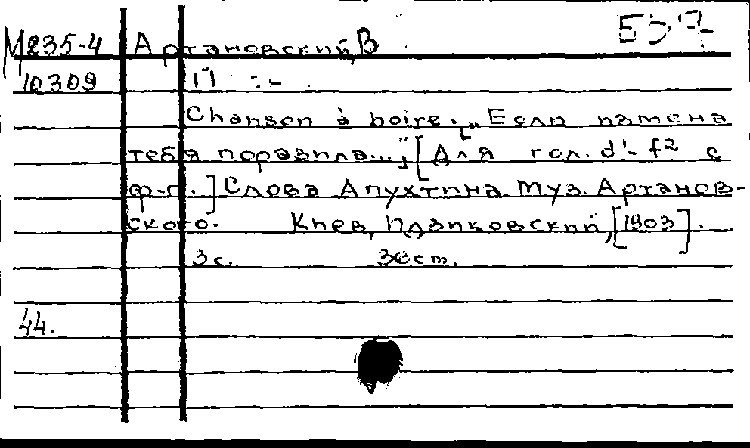 М235-4 Артановский, В
10309 П
Chanson à boire. „Если измена
тебя поразила...„ [Для гол. d¹- f² с
ф-п.] Слова Апухтина Муз. Артанов-
ского. Киев, Идзиковский, [1903].
3с. см.
44.